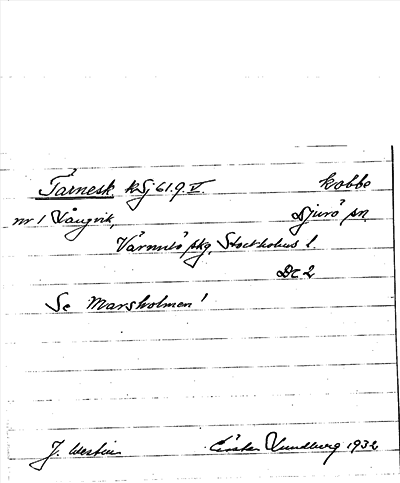 Tärnesk kSj 61.9.V. kobbe
nr 1 Långvik, Djurö sn
Värmdö skg, Stockholms l
Dc 2
Se Marsholmen!
J. Westin Gösta Lundberg 1932